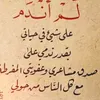 لم أندم
على شيء في حياتي
بقدر ندمي على
صدق مشاعري وعفويتي المفرطة
مع كل الناس من حولي